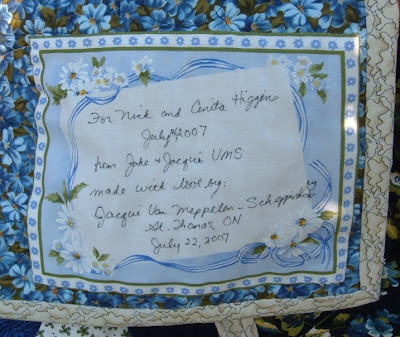 For Nick and Anita Higgins
July 2007
from Jake & Jacquie VMS
made with love by:
Jacqui Van Meppelen - Scheppink
St. Thomas, ON
July 22, 2007